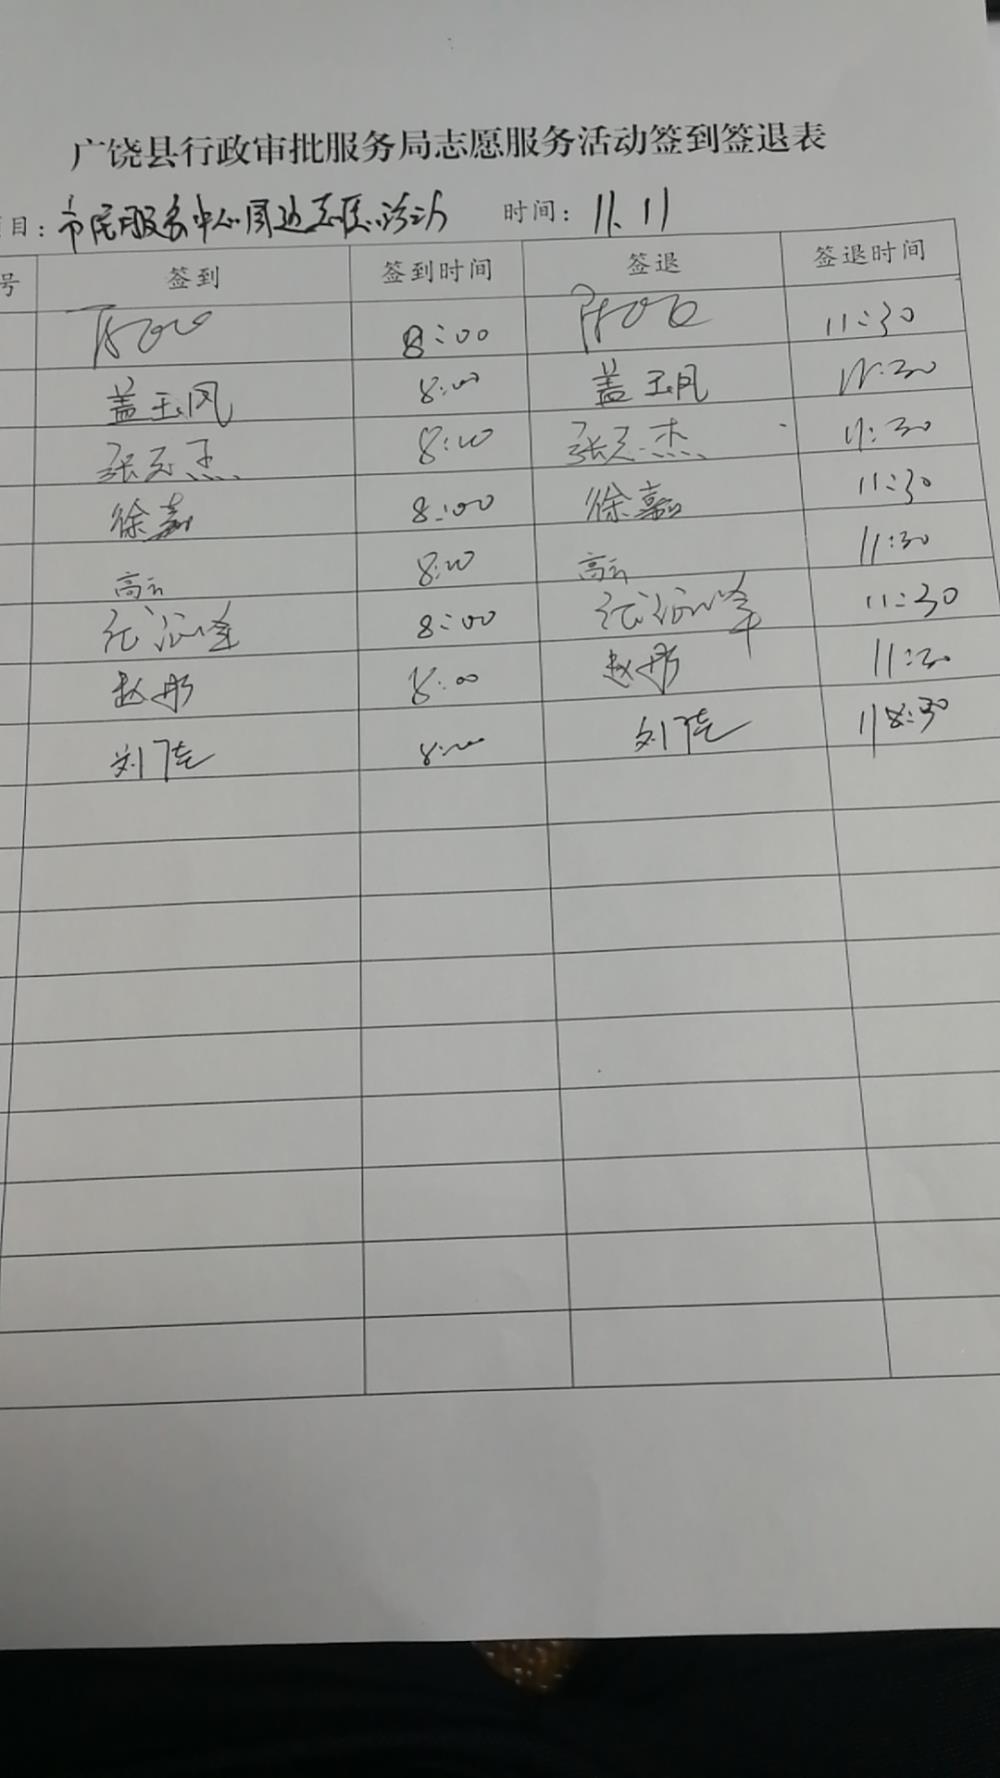 广饶县行政审批服务局志愿服务活动签到签退表
目：市民服务中心周边志愿活动 时间：11.11
号 签到 签到时间 签退 签退时间
8:00 11:30
盖玉凤 8:00 盖玉凤 11:30
张志杰 8:00 张志杰 11:30
徐嘉 8:00 徐嘉 11:30
高云 8:00 高云 11:30
8:00 11:30
赵彤 8:00 赵彤 11:30
刘 8:00 刘